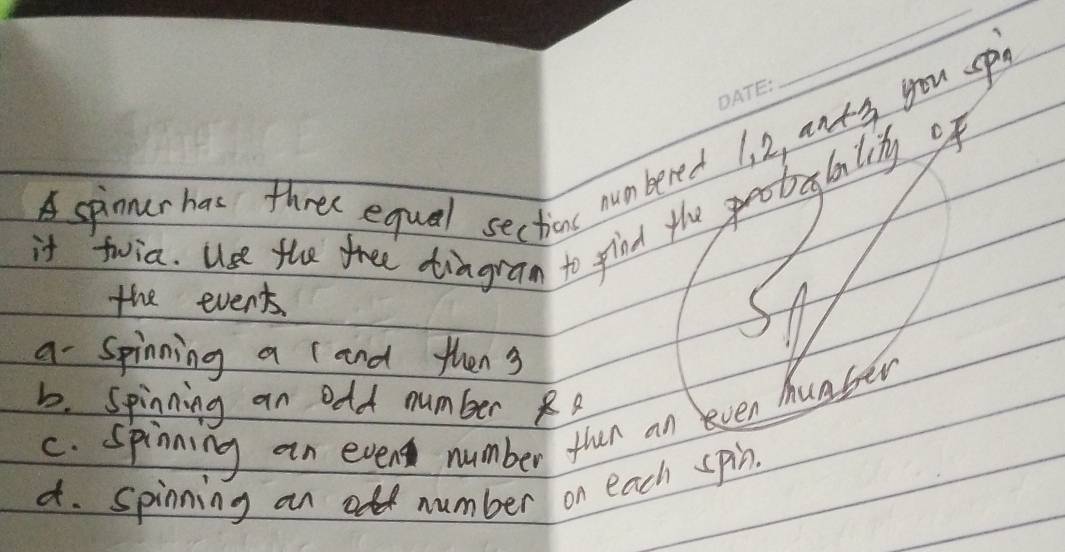 DATE:
A spinner has three equal sections numbered 1, 2, and 3 you spin
it twic. Use the tree diagram to find the probability of
the events.
a- Spinning a 1 and then 3
b. Spinning an odd number
c. Spinning an even number then an even number
d. Spinning an odd number on each spin.